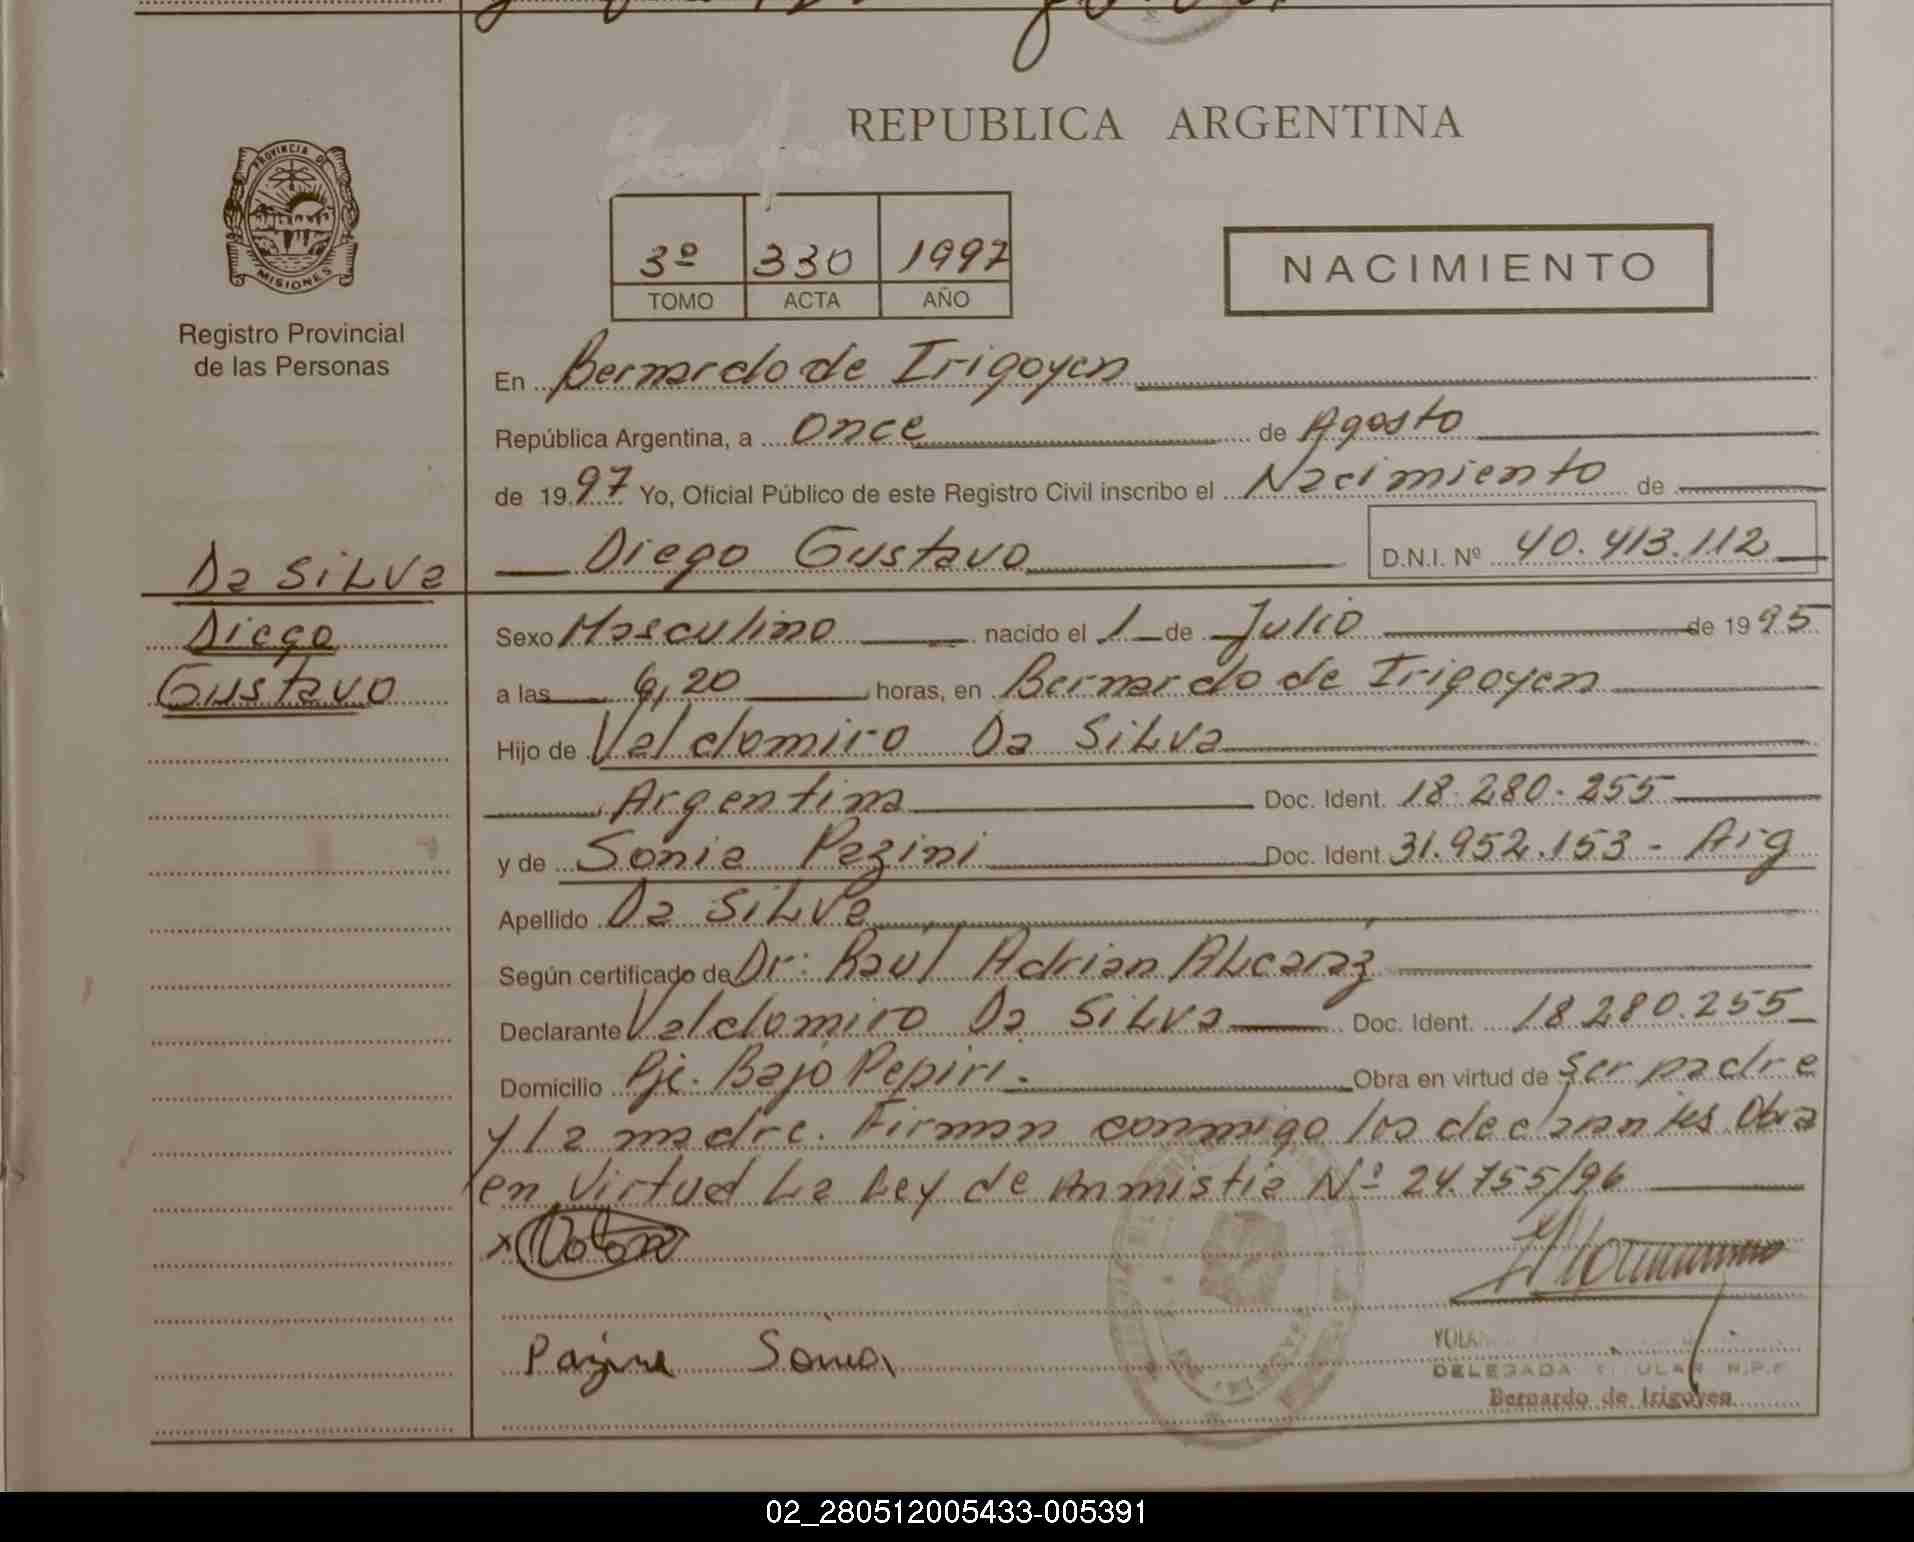 REPUBLICA ARGENTINA
PROVINCIA DE
MISIONES
Registro Provincial
de las Personas
3º 330 1997
TOMO ACTA AÑO
NACIMIENTO
En Bernardo de Irigoyen
República Argentina, a Once de Agosto
de 1997 Yo, Oficial Público de este Registro Civil inscribo el Nacimiento de
Diego Gustavo D.N.I. Nº 40.413.112
Da SiLva
Diego
Gustavo
Sexo Masculino nacido el 1 de Julio de 1995
a las 6,20 horas, en Bernardo de Irigoyen
Hijo de Valdomiro Da SiLva
Argentina Doc. Ident. 18.280.255
y de Sonia Pazini Doc. Ident. 31.952.153 - Arg
Apellido Da SiLva
Según certificado de Dr. Raúl Adrian ALcaraz
Declarante Valdomiro Da SiLva Doc. Ident. 18.280.255
Domicilio Pje. Bajo Pepiri. Obra en virtud de Ser padre
y la madre. Firman conmigo los declarantes Obra
en Virtud La Ley de Anmistia Nº 24.755/96
Sonia
DELEGADA
Bernardo de Irigoyen
02_280512005433-005391